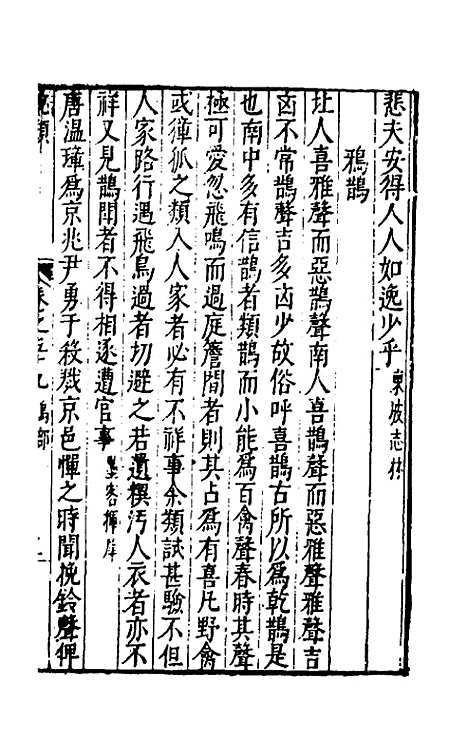 悲夫安得人人如逸少乎東坡志林
鴉鵲
北人喜雅聲而惡鵲聲南人喜鵲聲而惡雅聲雅聲吉
凶不常鵲聲吉多凶少故俗呼喜鵲古所以爲乾鵲是
也南中多有信鵲者類鵲而小能爲百禽聲春時其聲
極可愛忽飛鳴而過庭簷間者則其占爲有喜凡野禽
或獐狐之類入人家者必有不祥事余類試甚驗不但
人家路行遇飛鳥過者切避之若遺糞汚人衣者亦不
祥又見鵲鬪者不得相逐遭官事墨客揮犀
唐溫璋爲京兆尹勇于殺戮京邑憚之時聞挽鈴聲俾